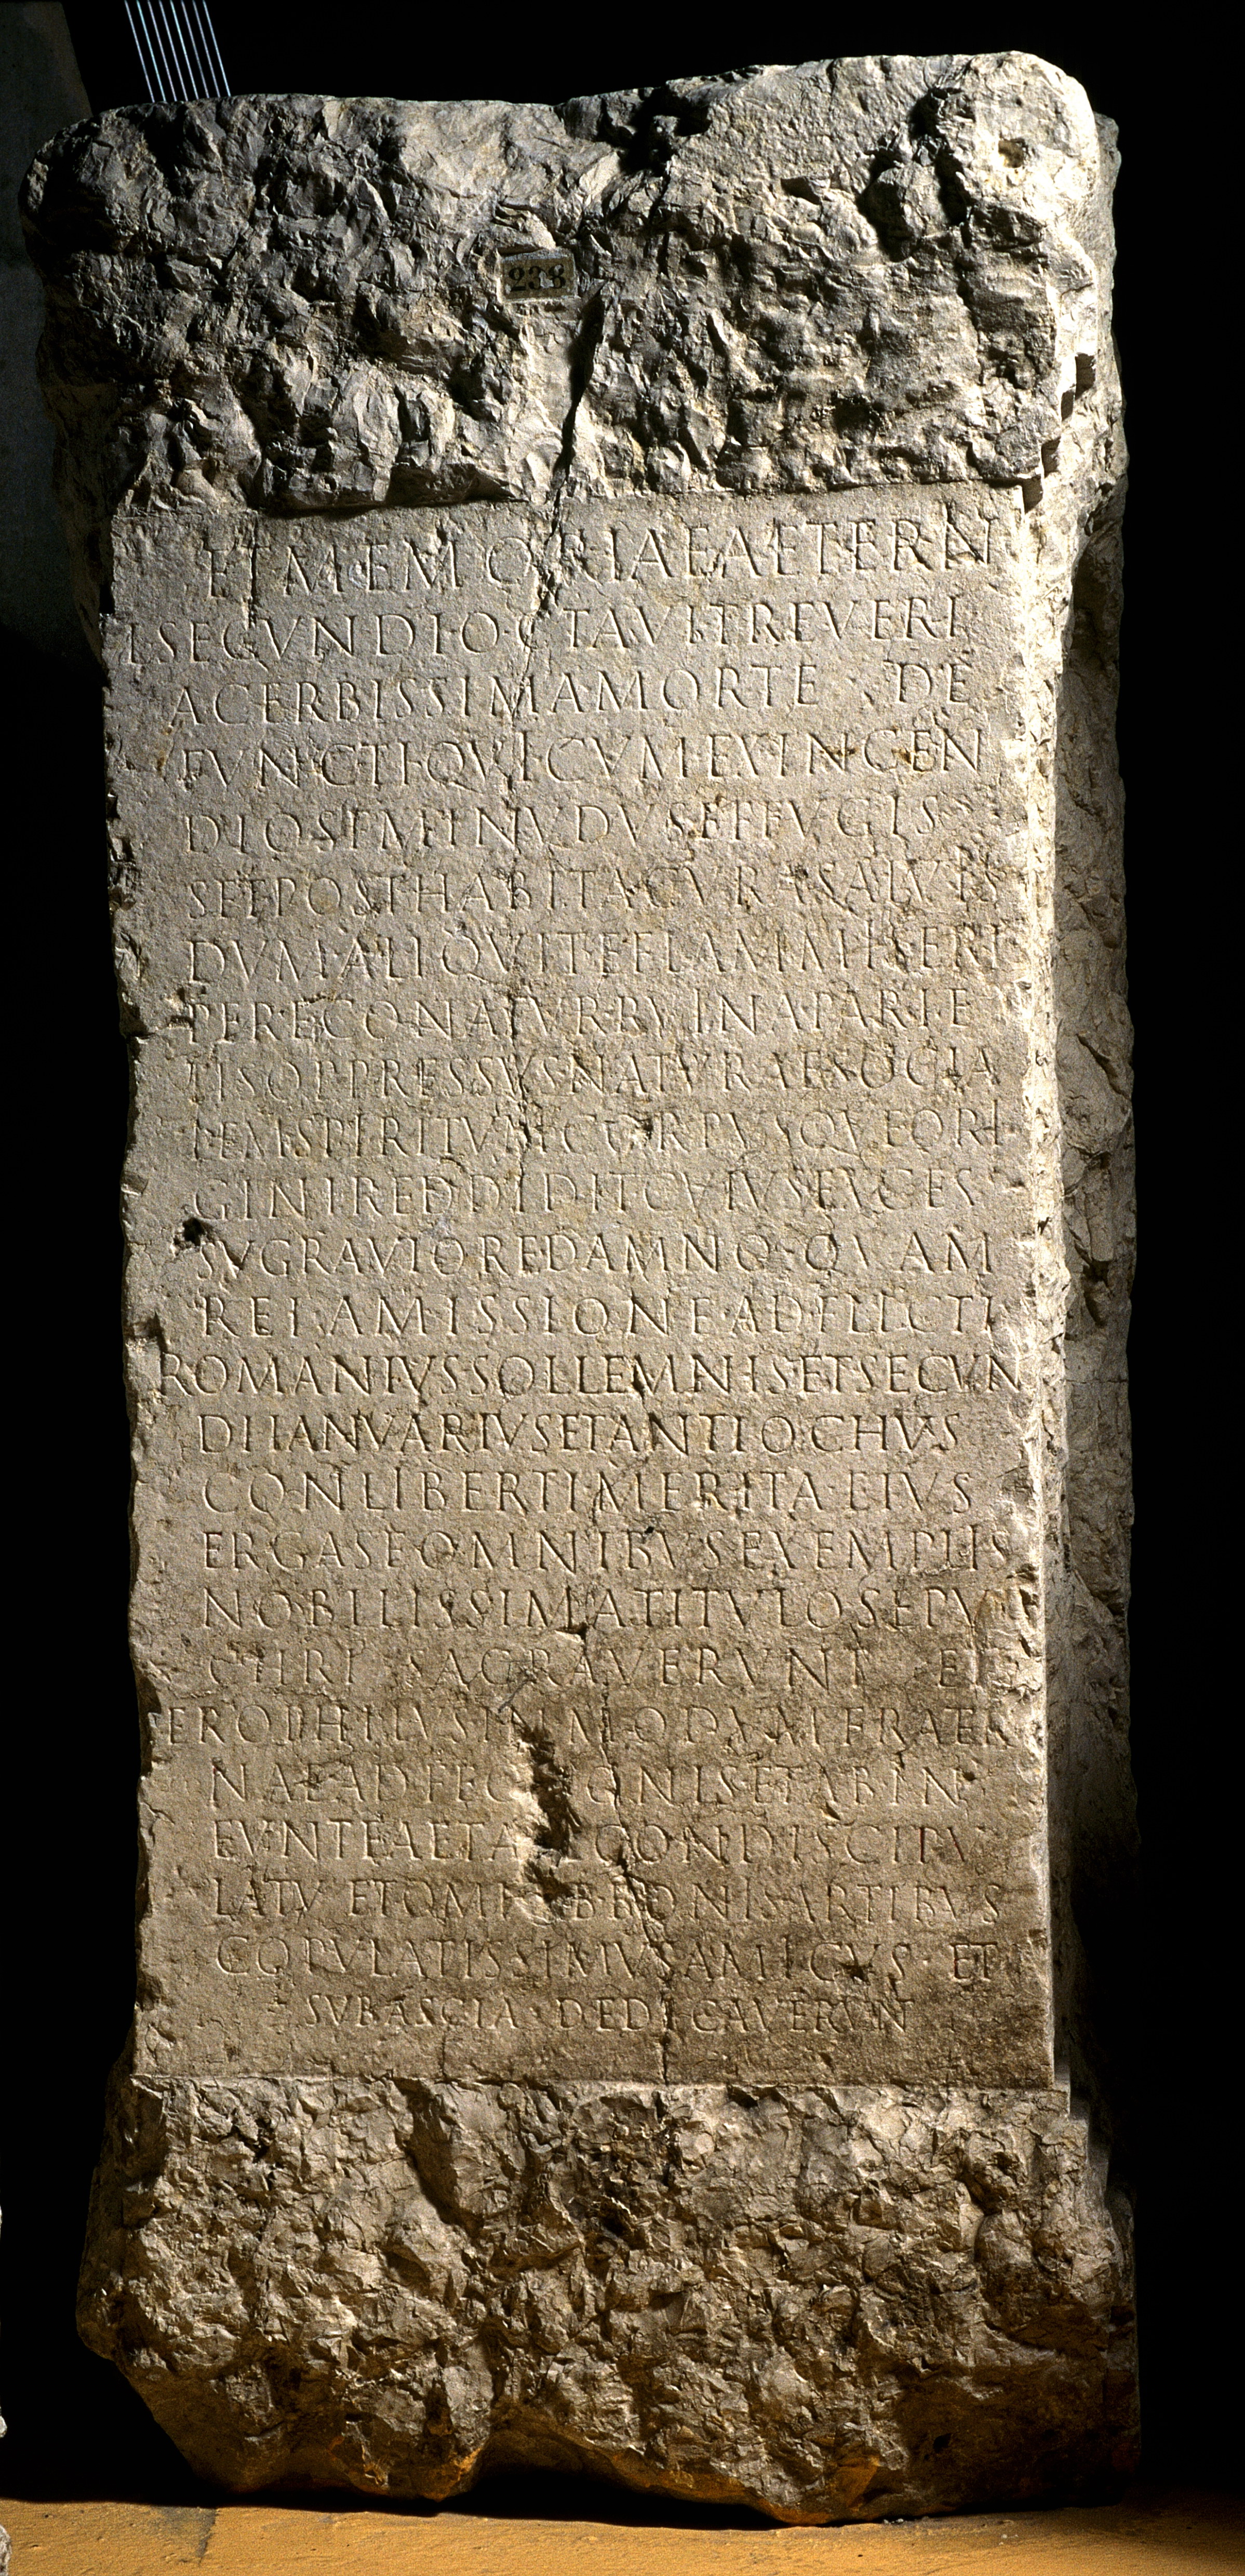 238
ET MEMORIAE AETERN
I SECVNDI OCTAVI TREVERI
ACERBISSIMA MORTE DE
FVNCTI QVI CVM EX INCEN
DIO SEMINVDVS EFFVGIS
SET POSTHABITA CVRA SALVTIS
DVM ALIQVIT E FLAMMIS ERI
PERE CONATVR RVINA PARIE
TIS OPPRESSVS NATVRAE SOCIA
LEM SPIRITVM CORPVSQVE ORI
GINI REDDIDIT CVIVS EXCES
SV GRAVIORE DAMNO QVAM
REI AMISSIONE ADFLICTI
ROMANIVS SOLLEMNIS ET SECVN
DI IANVARIVS ET ANTIOCHVS
CONLIBERTI MERITA EIVS
ERGA SE OMNIBVS EXEMPLIS
NOBILISSIMA TITVLO SEPVL
CHRI SACRAVERVNT ET
EROPHILVS IN MODVM FRATER
NAE ADFECTIONIS ET AB IN
EVNTE AETATE CONDISCIPV
LATV ET OMNIB BONIS ARTIBVS
COPVLATISSIMVS AMICVS ET
SVB ASCIA DEDICAVERVN